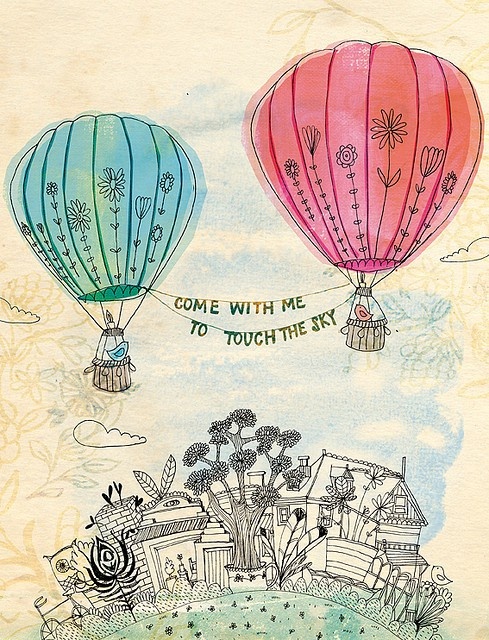 COME WITH ME
TO TOUCH THE SKY